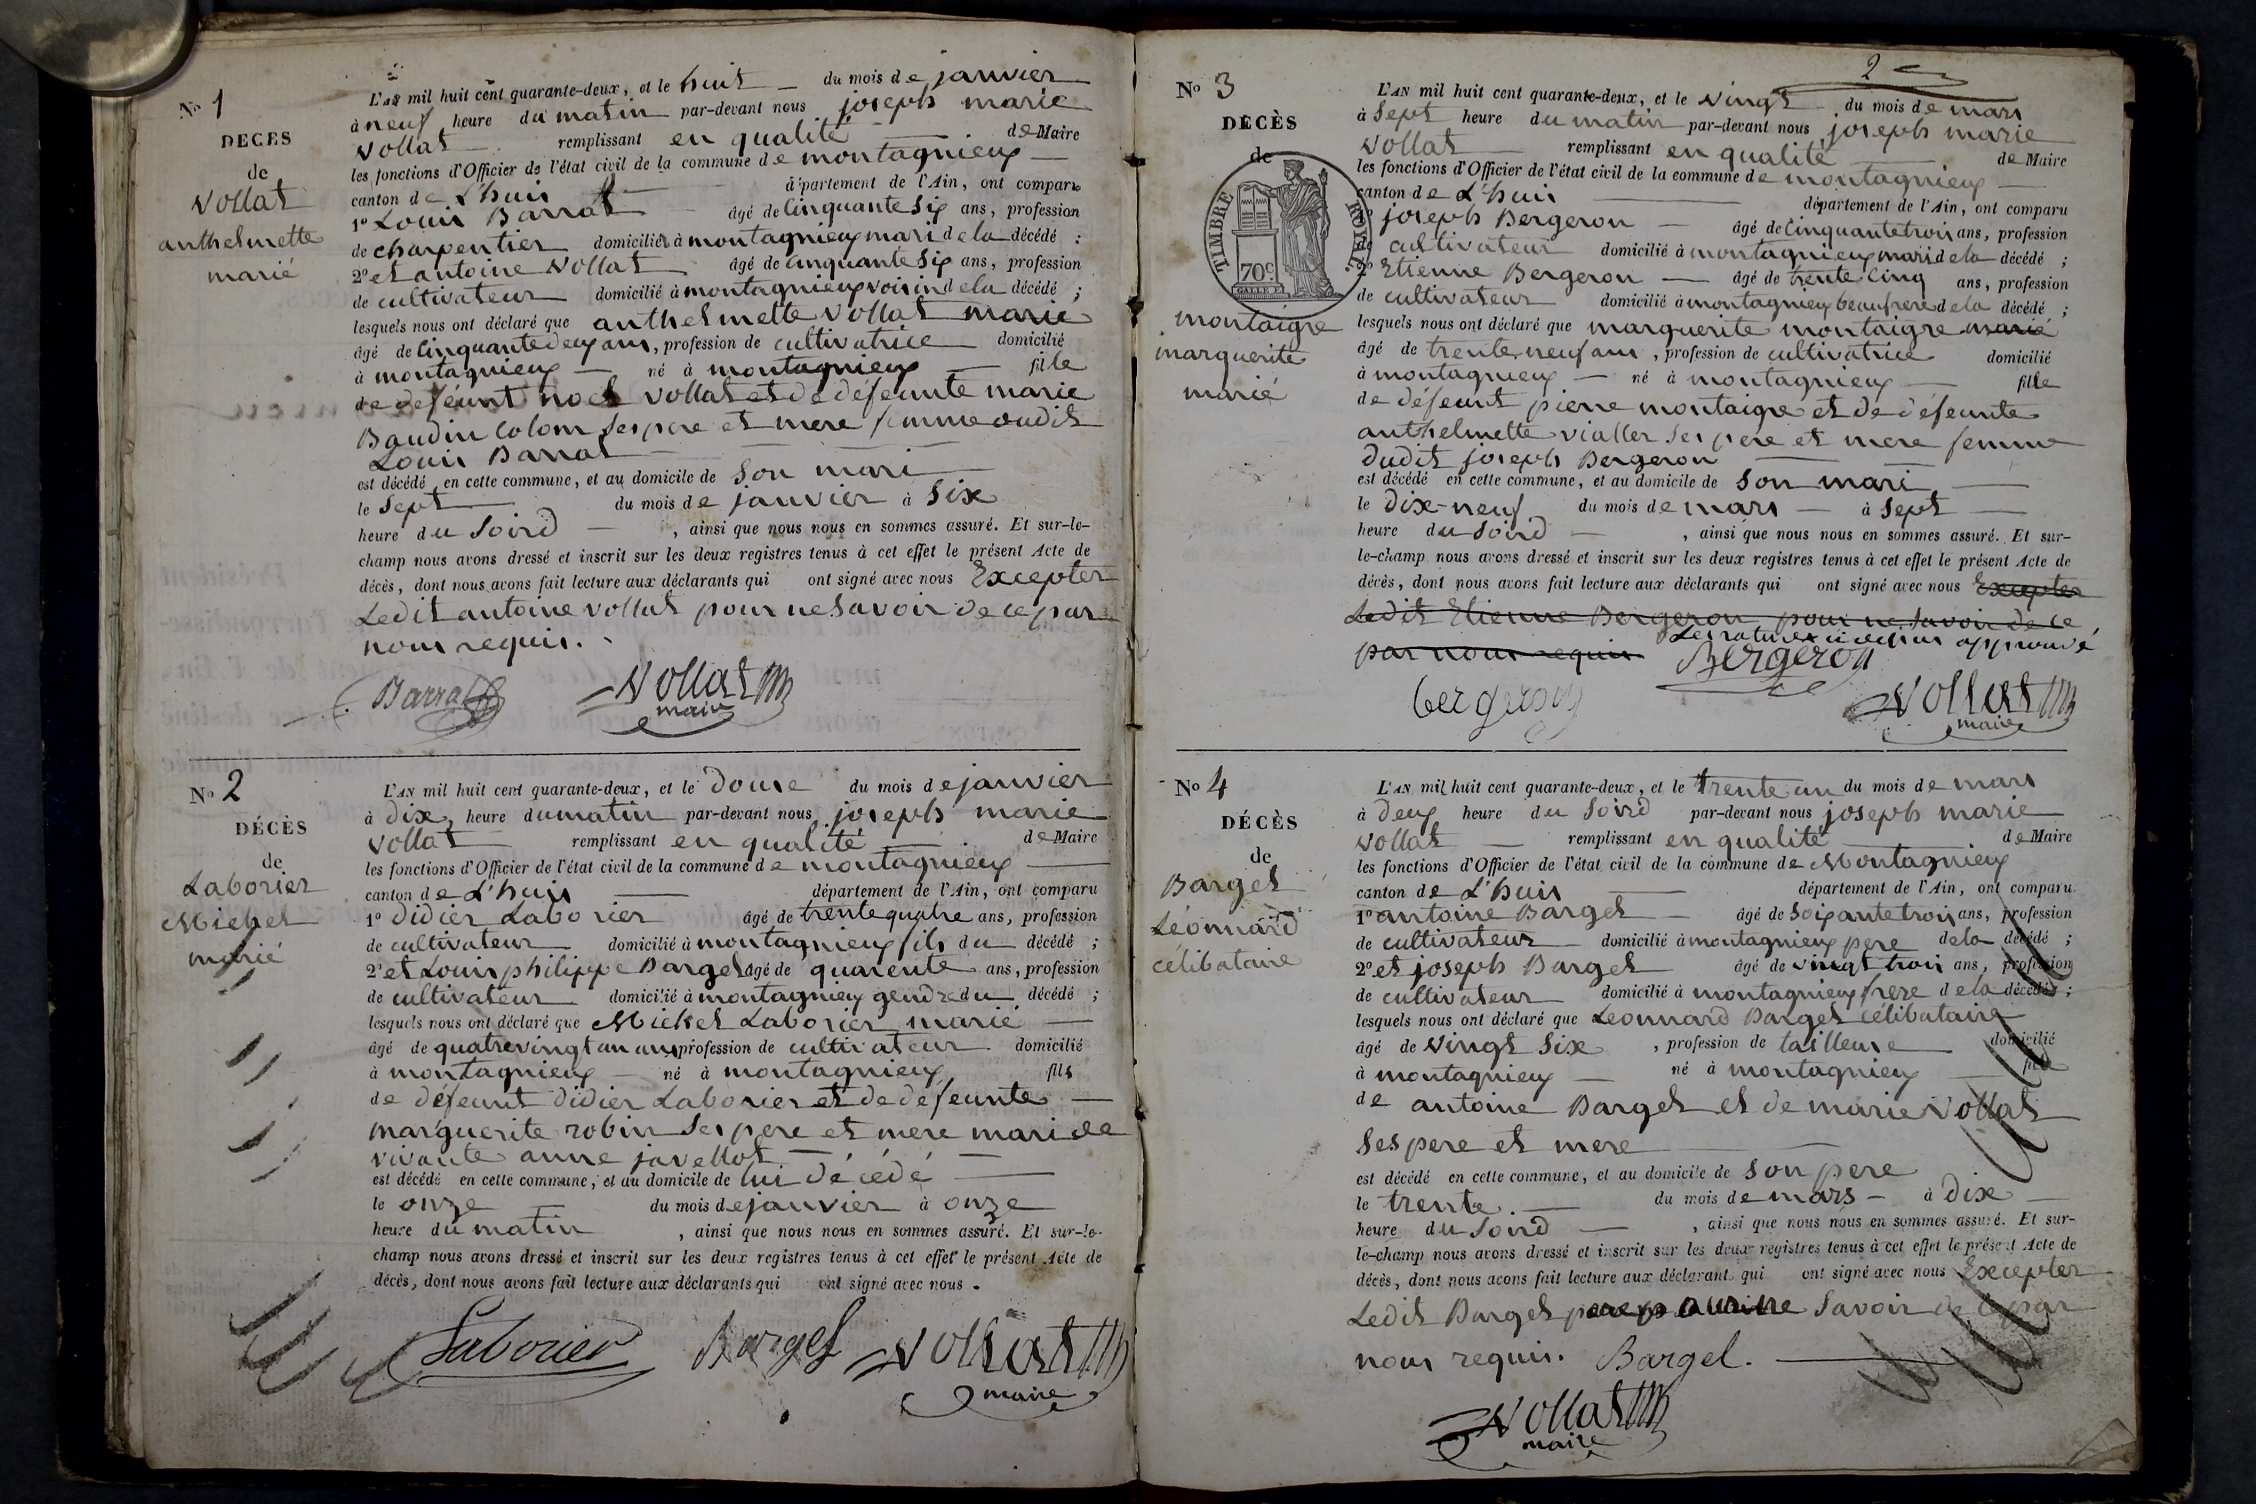 No 1
DECES
de
Vollat
anthelmette
marié
L'AN mil huit cent quarante-deux, et le huit du mois de janvier
à neuf heure du matin par-devant nous joseph marie
Vollat remplissant en qualité de Maire
les fonctions d'Officier de l'état civil de la commune de montagnieux
canton de L'huis département de l'Ain, ont comparu
1º Louis Barrat âgé de Cinquante Six ans, profession
de charpentier domicilié à montagnieux mari de la décédé ;
2º et antoine Vollat âgé de Cinquante Six ans, profession
de cultivateur domicilié à montagnieux voisin de la décédé ;
lesquels nous ont déclaré que anthelmette Vollat marié
âgé de Cinquante deux ans, profession de cultivatrice domicilié
à montagnieux né à montagnieux fille
de déféunt noel Vollat et de déféunte marie
Baudin Colom Ses pere et mere femme oudit
Louis Barrat
est décédé en cette commune, et au domicile de Son mari
le Sept du mois de janvier à Six
heure du Soird , ainsi que nous nous en sommes assuré. Et sur-le-
champ nous avons dressé et inscrit sur les deux registres tenus à cet effet le présent Acte de
décès, dont nous avons fait lecture aux déclarants qui ont signé avec nous Excepter
Ledit antoine Vollat pour ne Savoir de ce par
nous requis.
Barrat Vollat
maire
No 2
DÉCÈS
de
Laborier
Michel
marié
L'AN mil huit cent quarante-deux, et le Douse du mois de janvier
à dix heure du matin par-devant nous joseph marie
Vollat remplissant en qualité de Maire
les fonctions d'Officier de l'état civil de la commune de montagnieux
canton de L'huis département de l'Ain, ont comparu
1º Didier Laborier âgé de trente quatre ans, profession
de cultivateur domicilié à montagnieux fils du décédé ;
2º et Louis philippe Barget âgé de quarente ans, profession
de cultivateur domicilié à montagnieux gendre du décédé ;
lesquels nous ont déclaré que Michel Laborier marié
âgé de quatrevingt un ans profession de cultivateur domicilié
à montagnieux né à montagnieux fils
de déféunt Didier Laborier et de déféunte
marguerite robin Ses pere et mere mari de
vivante anne javellot
est décédé en cette commune, et au domicile de lui décédé
le onze du mois de janvier à onze
heure du matin , ainsi que nous nous en sommes assuré. Et sur-le-
champ nous avons dressé et inscrit sur les deux registres tenus à cet effet le présent Acte de
décès, dont nous avons fait lecture aux déclarants qui ont signé avec nous .
Laborier Barget Vollat
maire
2
No 3
DÉCÈS
de
TIMBRE ROYAL
70 C.
montaigre
marguerite
marié
L'AN mil huit cent quarante-deux, et le vingt du mois de mars
à Sept heure du matin par-devant nous joseph marie
Vollat remplissant en qualité de Maire
les fonctions d'Officier de l'état civil de la commune de montagnieux
canton de L'huis département de l'Ain, ont comparu
joseph Bergeron âgé de Cinquante trois ans, profession
de cultivateur domicilié à montagnieux mari de la décédé ;
2º Etienne Bergeron âgé de trente Cinq ans, profession
de cultivateur domicilié à montagnieux beaufrere de la décédé ;
lesquels nous ont déclaré que marguerite montaigre marié
âgé de trente neuf ans , profession de cultivatrice domicilié
à montagnieux né à montagnieux fille
de déféunt pierre montaigre et de déféunte
anthelmette vialler Ses pere et mere femme
dudit joseph Bergeron
est décédé en cette commune, et au domicile de Son mari
le Dix-neuf du mois de mars à Sept
heure du Soird , ainsi que nous nous en sommes assuré. Et sur-
le-champ nous avons dressé et inscrit sur les deux registres tenus à cet effet le présent Acte de
décès, dont nous avons fait lecture aux déclarants qui ont signé avec nous Excepter
Ledit Etienne Bergeron pour ne Savoir de ce
par nous requis Les ratures ci dessus approuvé
Bergeron
bergeron Vollat
maire
No 4
DÉCÈS
de
Barget
Léonnard
célibataire
L'AN mil huit cent quarante-deux, et le trente un du mois de mars
à deux heure du Soird par-devant nous joseph marie
Vollat remplissant en qualité de Maire
les fonctions d'Officier de l'état civil de la commune de Montagnieux
canton de L'huis département de l'Ain, ont comparu
1º antoine Barget âgé de Soixante trois ans, profession
de cultivateur domicilié à montagnieux pere de la décédé ;
2º et joseph Barget âgé de vingt trois ans, profession
de cultivateur domicilié à montagnieux frere de la décédé ;
lesquels nous ont déclaré que Léonnard Barget célibataire
âgé de vingt Six , profession de tailleuse domicilié
à montagnieux né à montagnieux fille
de antoine Barget et de marie Vollat
Ses pere et mere
est décédé en cette commune, et au domicile de Son pere
le trente du mois de mars à Dix
heure du Soird , ainsi que nous nous en sommes assuré. Et sur-
le-champ nous avons dressé et inscrit sur les deux registres tenus à cet effet le présent Acte de
décès, dont nous avons fait lecture aux déclarants qui ont signé avec nous Excepter
Ledit Barget pere pour ne Savoir de ce par
nous requis. Bargel.
Vollat
maire